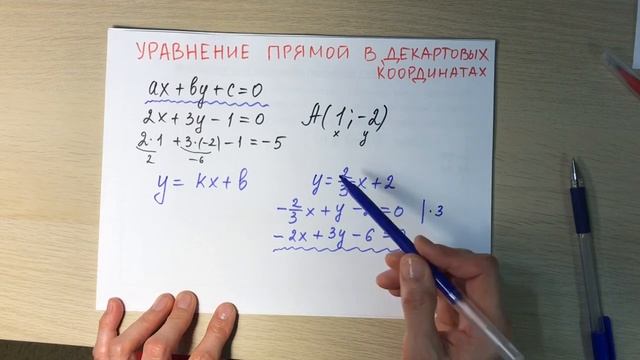 УРАВНЕНИЕ ПРЯМОЙ В ДЕКАРТОВЫХ
КООРДИНАТАХ
ax + by + c = 0
2x + 3y - 1 = 0
A(1; -2)
x y
2·1 + 3·(-2) - 1 = -5
2 -6
y = kx + b
y = 2/3 x + 2
- 2/3 x + y - = 0 | ·3
- 2x + 3y - 6 =